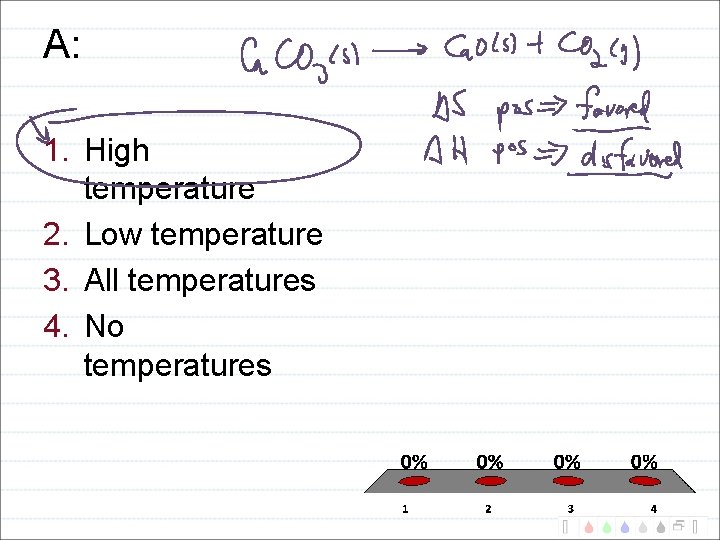 A:
CaCO₃(s) ⟶ CaO(s) + CO₂(g)
ΔS pos ⟹ favored
ΔH pos ⟹ disfavored
1. High
temperature
2. Low temperature
3. All temperatures
4. No
temperatures
0% 0% 0% 0%
1 2 3 4